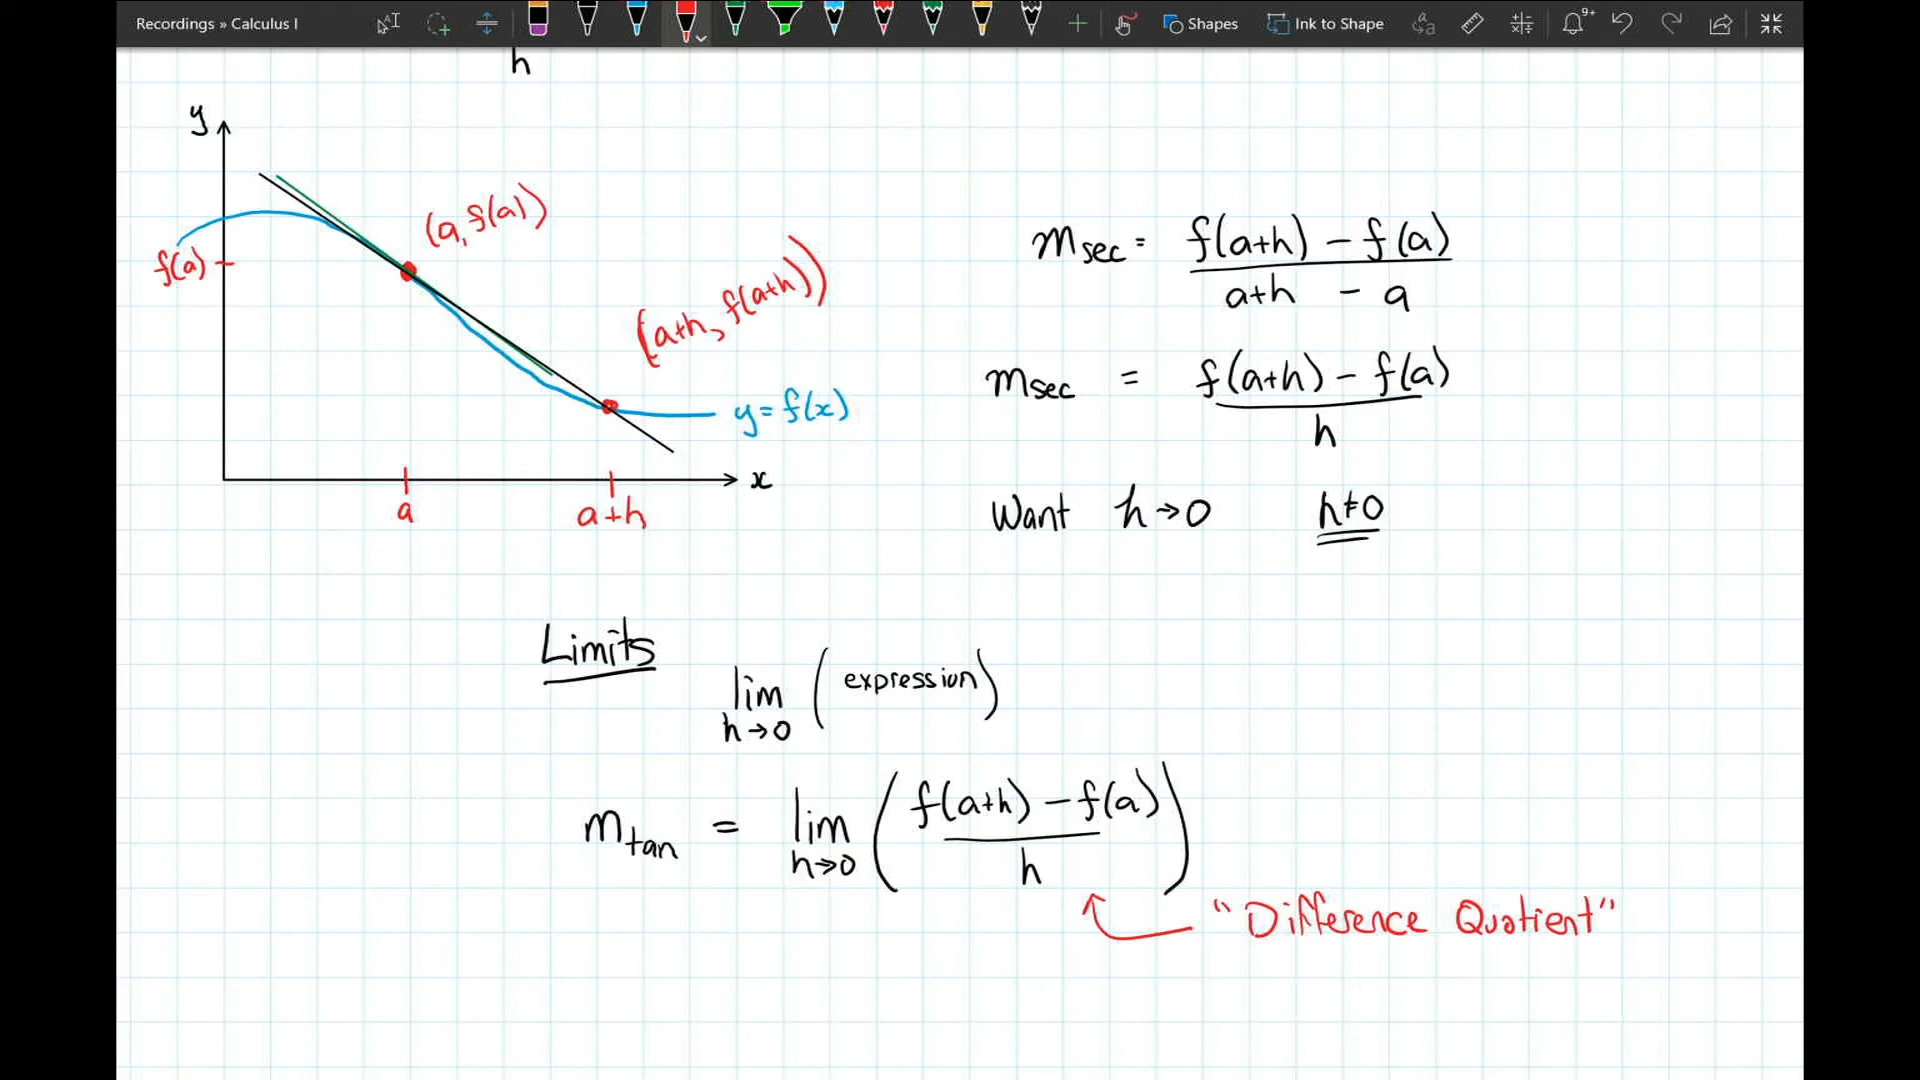 Recordings » Calculus I
Shapes
Ink to Shape
9+
h
y
(a, f(a))
f(a)
(a+h, f(a+h))
y = f(x)
x
a
a+h
m_sec = f(a+h) - f(a)
a+h - a
m_sec = f(a+h) - f(a)
h
Want h→0 h≠0
Limits
lim (expression)
h→0
m_tan = lim (f(a+h) - f(a))
h→0 h
"Difference Quotient"